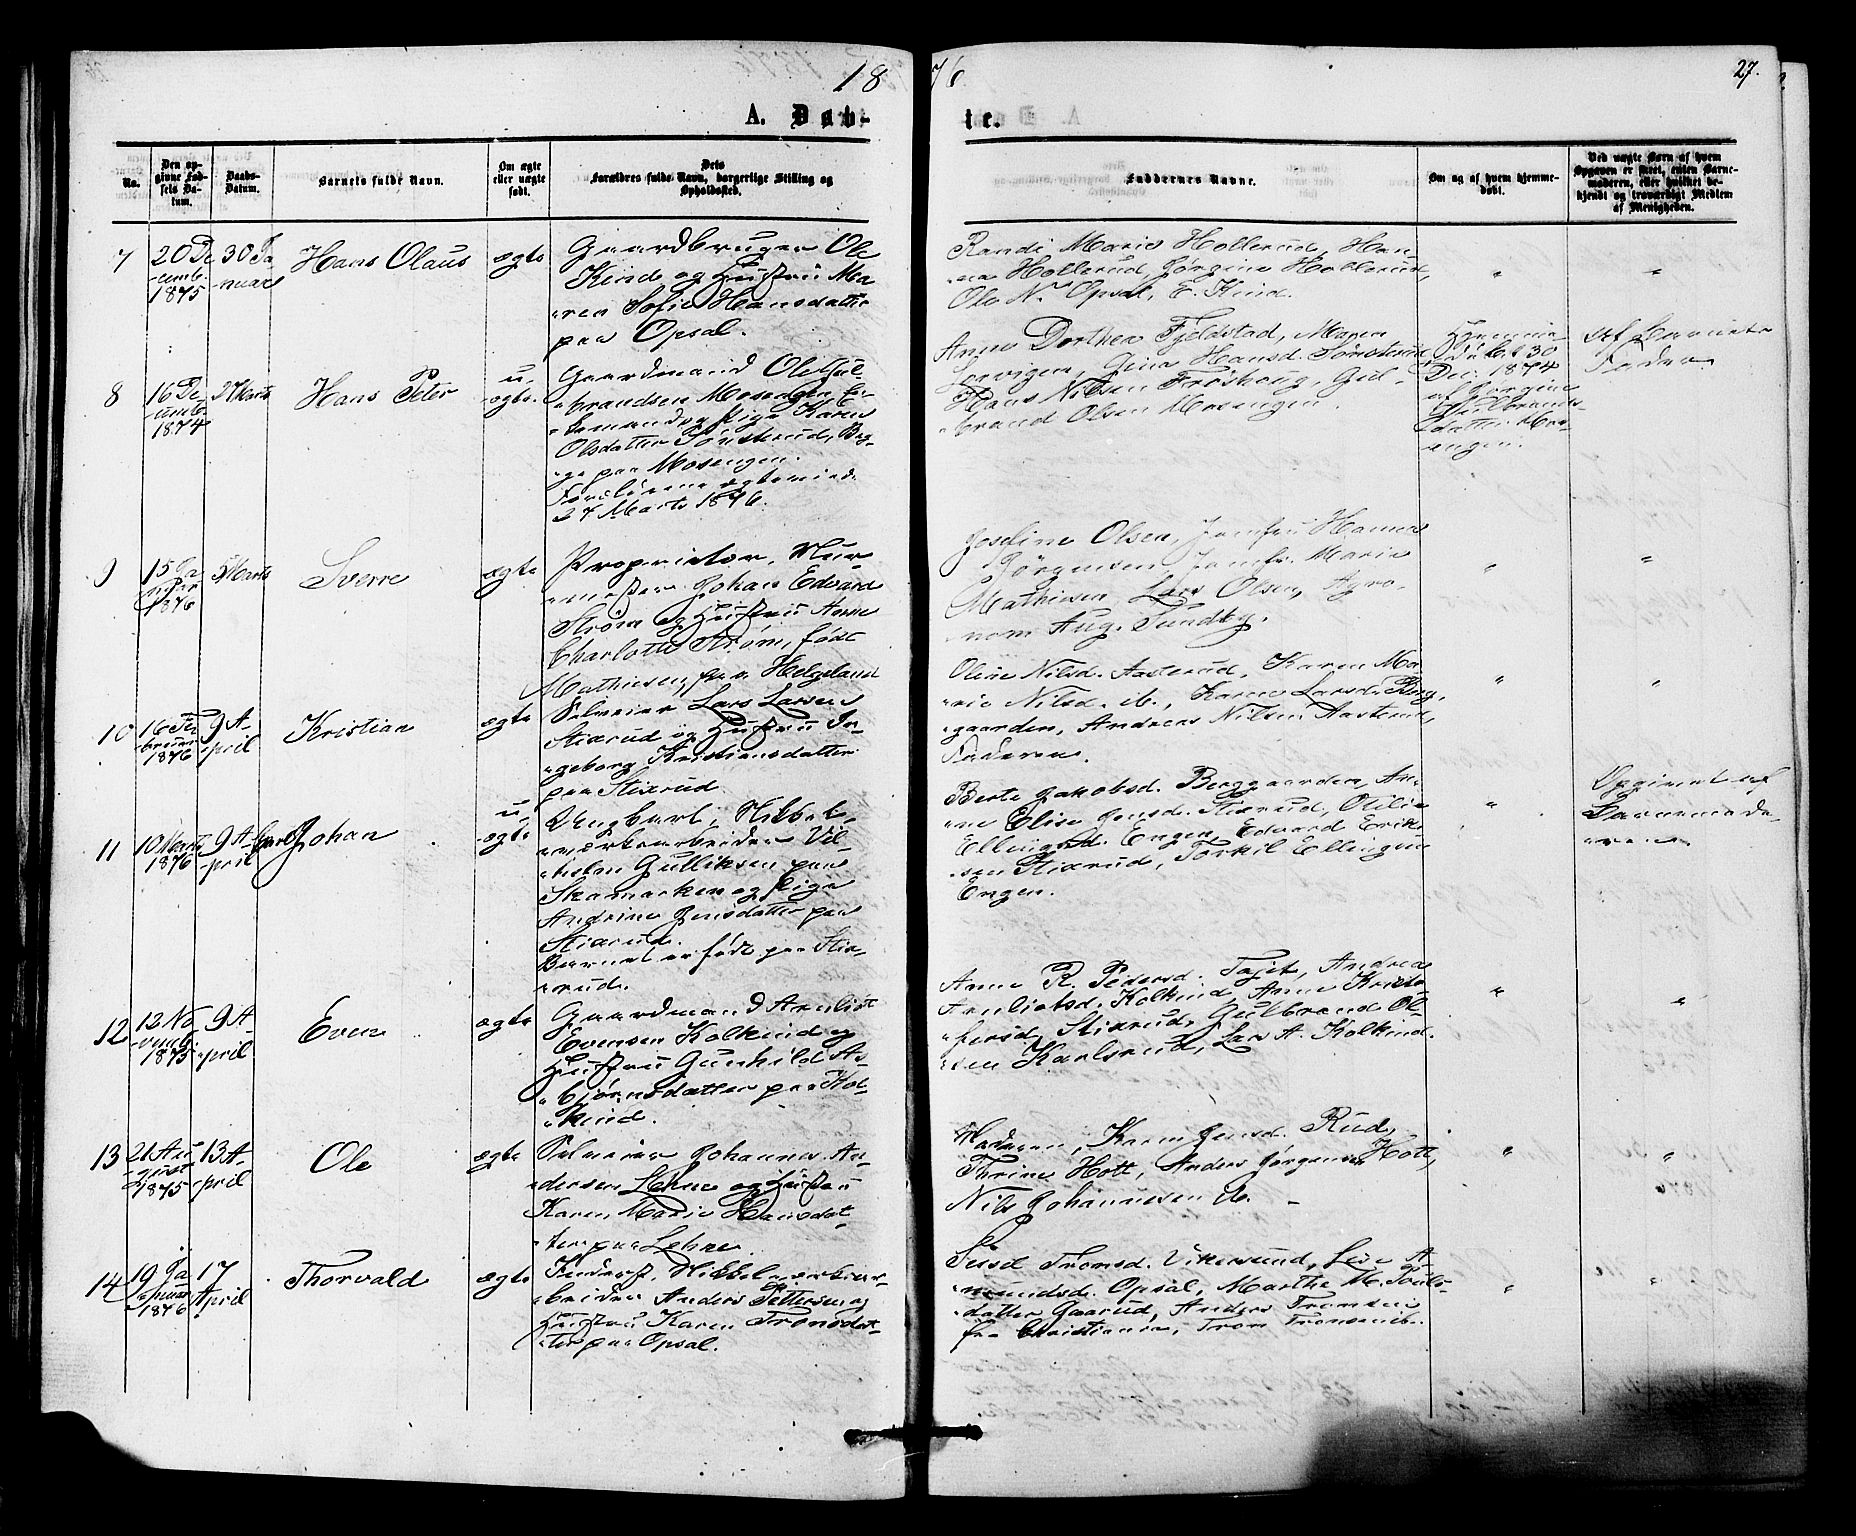 1876
27.
A. Døb-
te.
No.
Den op-
givne Fød-
sels Da-
tum.
Daabs-
Datum.
Barnets fulde Navn.
Om ægte
eller uægte
født.
Dets
Forældres fulde Navn, borgerlige Stilling og
Opholdssted.
Faddernes Navne.
Om og af hvem hjemme-
døbt.
Ved uægte Børn af hvem
Opgaven er skeet, enten Barne-
moderen, eller hvilket be-
kjendt og troværdigt Medlem
af Menigheden.
7
20 De-
cemb.
1875
30 Ja-
nuar
Hans Olaus
ægte
Gaardbruger Ole
Kind og Hustru Ma-
ren Sofie Hansdatter
paa Opsal.
Randi Marie Hollerud, Han-
na Hollerud, Jørgine Hollerud,
Ole N. Opsal, E. Kind.
"
"
8
16 De-
cemb.
1874
27 Marts
Hans Peter
u-
ægte
Gaardmand Ole Gul-
brandsen Mosengen En-
kemand og Pige Karen
Olsdatter Tønsterud, Beg-
ge paa Mosengen.
Forældrene ægteviede
27 Marts 1876.
Anne Dorthea Fjeldstad, Maren
Gina Hansd. Tønsterud
Hans Nilsen Frøshaug, Gul-
brand Olsen Mosengen.
Hjemme
døbt 30
Dec. 1874
af Jørgine
Gulbrands-
datter Mos-
engen.
Af Barnets
Fader
9
15 Ja-
nuar
1876
5 Marts
Sverre
ægte
Proprietær, Mur-
mester Johan Edvard
Strøm og Hustru Anne
Charlotte Strøm, født
Mathiesen, paa Helgeland
Josefine Olsen, Jomfru Hanna
Jørgensen, Jomfr. Marie
Mathiesen, Lars Olsen, Agro-
nom Aug. Sundby.
"
"
10
16 Fe-
bruar
1876
9 A-
pril
Kristian
ægte
Selveier Lars Larsen
Stixrud og Hustru In-
geborg Kristiansdatter
paa Stixrud
Oline Nilsd. Aasterud, Karen Ma-
rie Nilsd. ib., Karen Larsd. Berg-
gaarden, Andreas Nilsen Aasterud,
Faderen.
"
"
11
10 Marts
1876
9 A-
pril
Carl Johan
u-
ægte
Ungkarl, Nikkel-
værksarbeider Vil-
helm Gulliksen paa
Skamarken og Pige
Andrine Jensdatter paa
Stixrud.
Barnet er født paa Stix-
rud.
Berte Jakobsd. Berggaarden, An-
ne Elise Jensd. Stixrud, Otilie
Ellingsd. Engen, Edvard Erik-
sen Stixrud, Torkil Ellingsen
Engen.
"
Opgivet af
Barnemode-
ren
12
13 No-
vemb.
1875
9 A-
pril
Even
ægte
Gaardmand Arnliot
Evensen Kolkind og
Hustru Gunhild As-
bjørnsdatter paa Kol-
kind.
Anne R. Pedersd. Andrea
Arnliotsd. Kolkind, Anne Kristo-
fersd. Stixrud, Gulbrand Ol-
sen Karlsrud, Lars A. Kolkind.
"
"
13
21 Au-
gust
1875
13 A-
pril
Ole
ægte
Selveier Johannes An-
dersen Lehne og Hustru
Karen Marie Hansdat-
ter paa Lehne
Moderen, Karen Jensd. Rud,
Thrine Hott, Anders Jørgensen Hott,
Nils Johannesen ib. -
"
"
14
19 Ja-
nuar
1876
17
April
Thorvald
ægte
Inderst, Nikkelværksar-
beider Anders Pettersen og
Hustru Karen Tronsdat-
ter paa Opsal.
Sissel Tronsd. Vikersund, Live A-
mundsd. Opsal, Marthe M. Pouls-
datter Gaarud, Anders Tronsen
fra Christiania, Tron Tronsen ib.
"
"